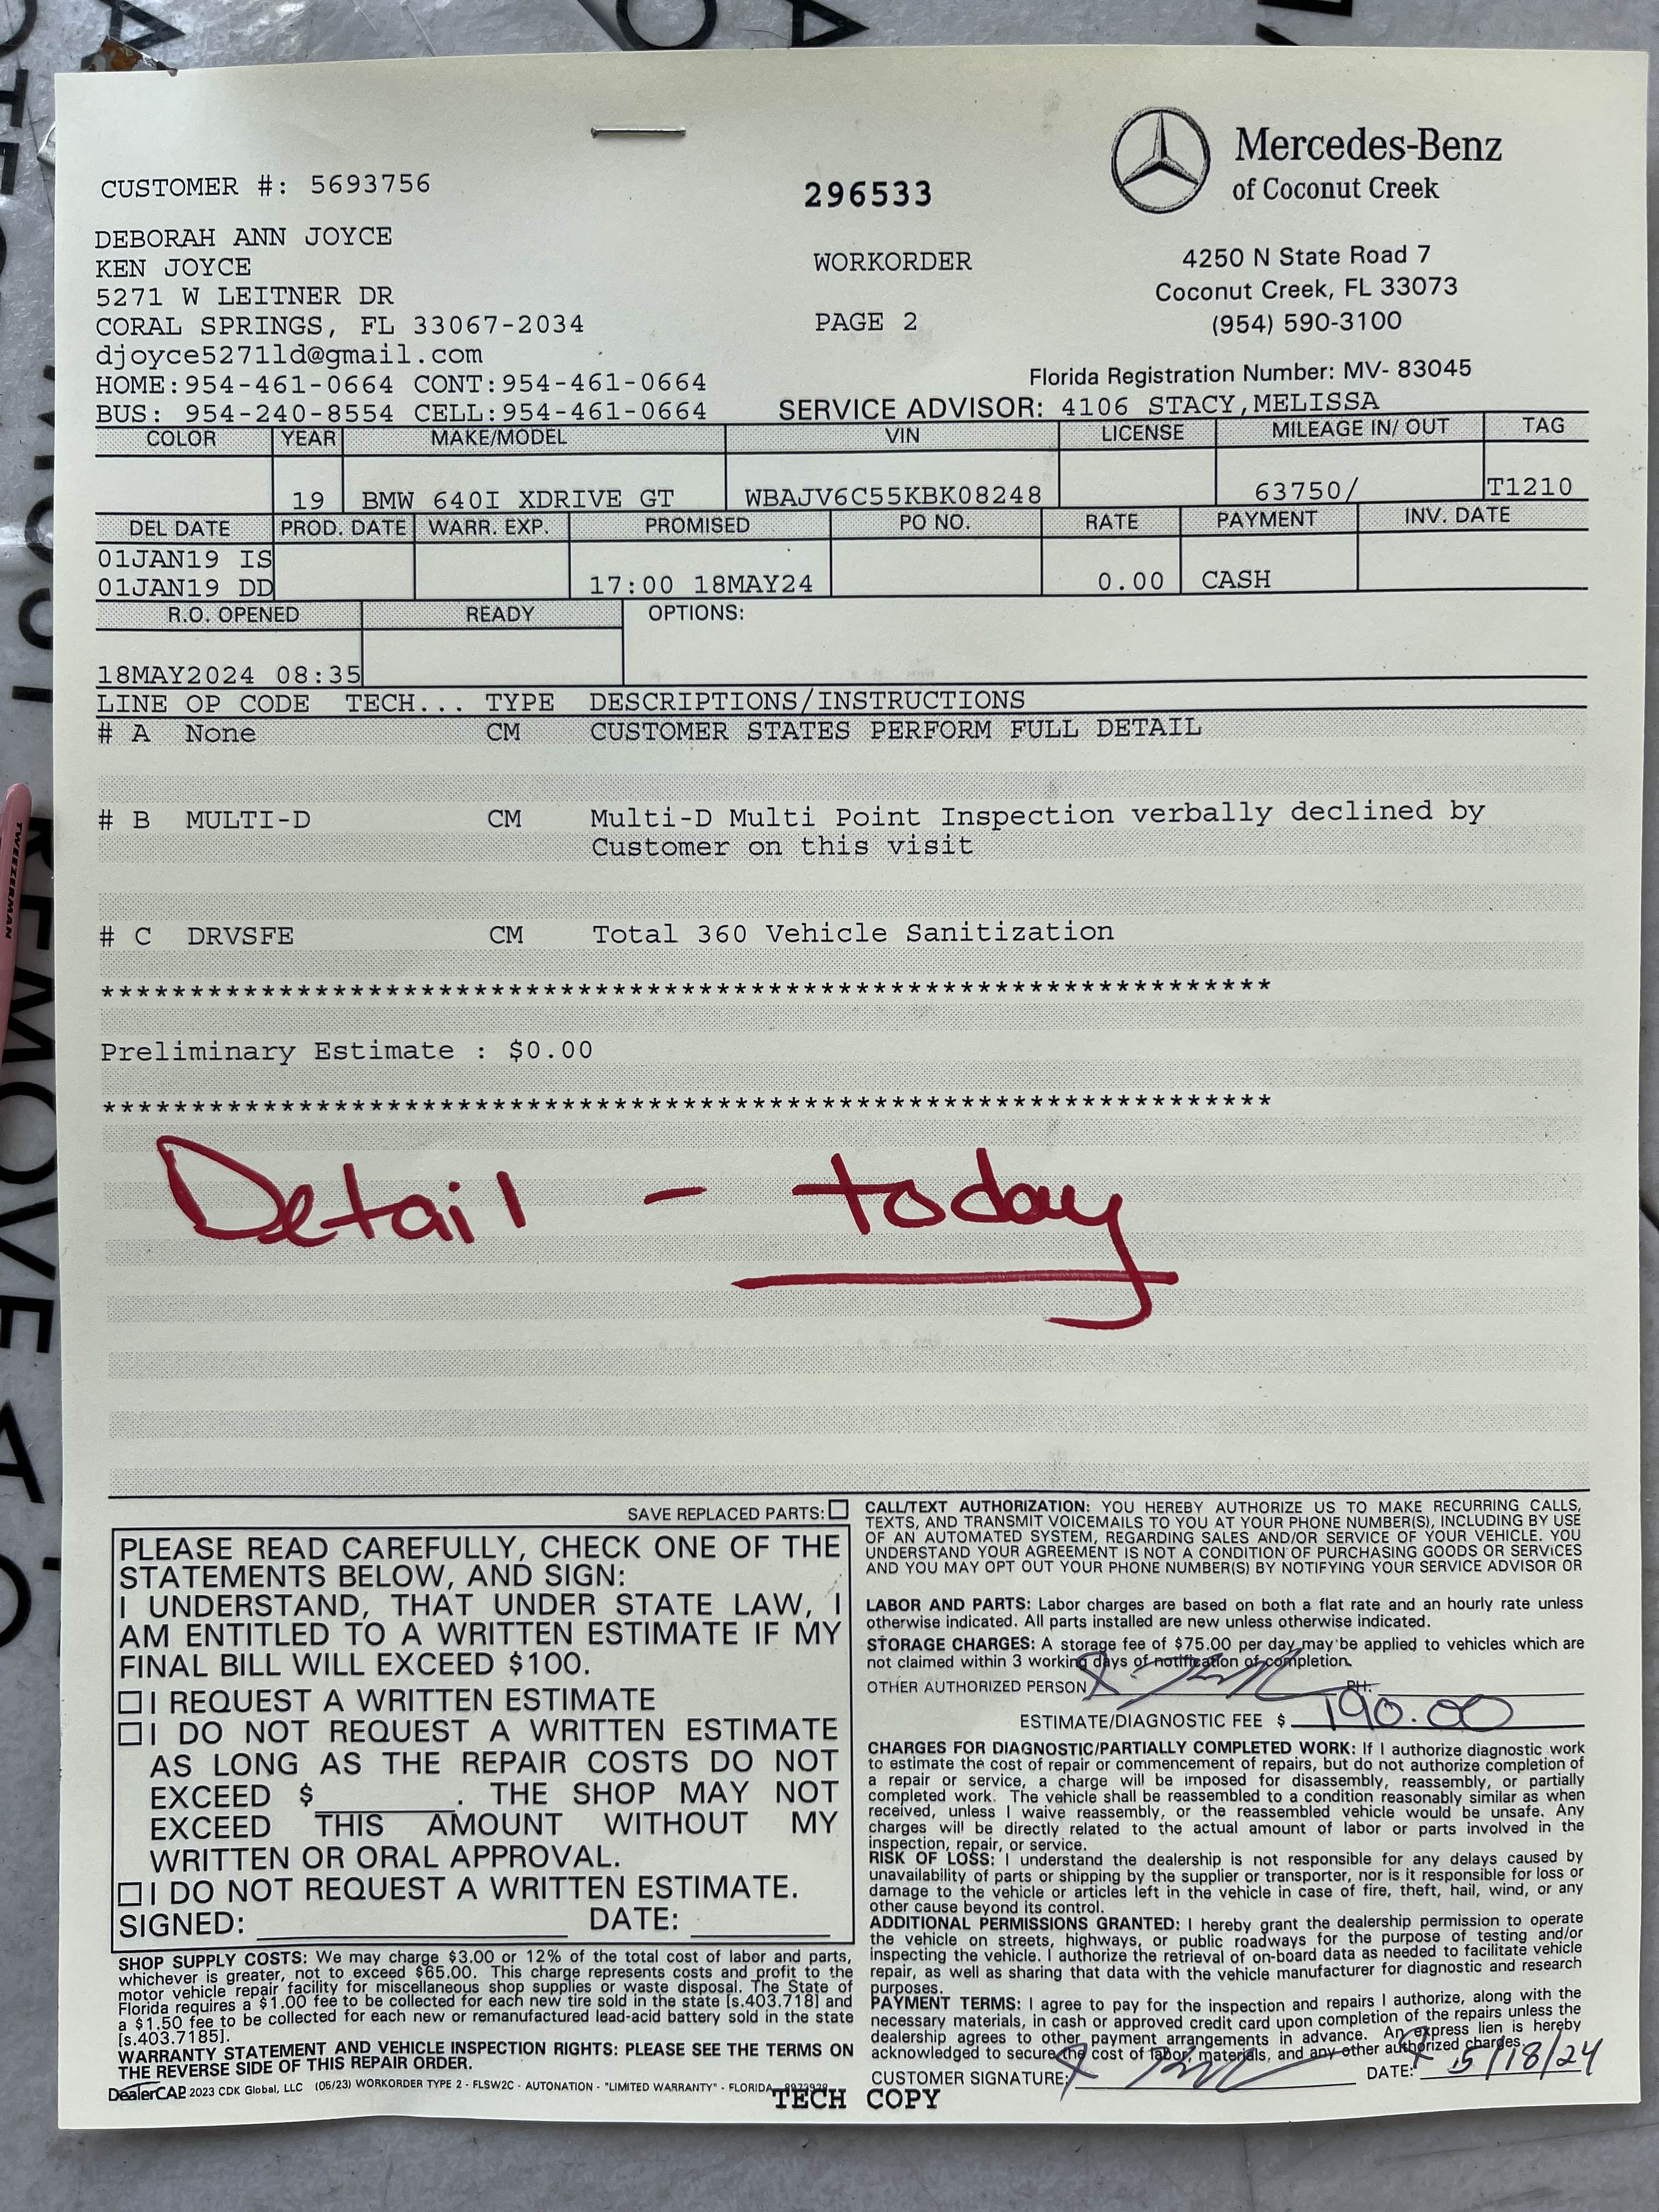 Mercedes-Benz
of Coconut Creek
CUSTOMER #: 5693756
296533
DEBORAH ANN JOYCE
KEN JOYCE
5271 W LEITNER DR
CORAL SPRINGS, FL 33067-2034
djoyce5271ld@gmail.com
HOME:954-461-0664 CONT:954-461-0664
BUS: 954-240-8554 CELL:954-461-0664
WORKORDER
PAGE 2
4250 N State Road 7
Coconut Creek, FL 33073
(954) 590-3100
Florida Registration Number: MV- 83045
SERVICE ADVISOR: 4106 STACY,MELISSA
COLOR YEAR MAKE/MODEL VIN LICENSE MILEAGE IN/ OUT TAG
19 BMW 640I XDRIVE GT WBAJV6C55KBK08248 63750/ T1210
DEL DATE PROD. DATE WARR. EXP. PROMISED PO NO. RATE PAYMENT INV. DATE
01JAN19 IS
01JAN19 DD 17:00 18MAY24 0.00 CASH
R.O. OPENED READY OPTIONS:
18MAY2024 08:35
LINE OP CODE TECH... TYPE DESCRIPTIONS/INSTRUCTIONS
# A None CM CUSTOMER STATES PERFORM FULL DETAIL
# B MULTI-D CM Multi-D Multi Point Inspection verbally declined by
Customer on this visit
# C DRVSFE CM Total 360 Vehicle Sanitization
*****************************************************************
Preliminary Estimate : $0.00
*****************************************************************
Detail - today
SAVE REPLACED PARTS:
PLEASE READ CAREFULLY, CHECK ONE OF THE
STATEMENTS BELOW, AND SIGN:
I UNDERSTAND, THAT UNDER STATE LAW, I
AM ENTITLED TO A WRITTEN ESTIMATE IF MY
FINAL BILL WILL EXCEED $100.
I REQUEST A WRITTEN ESTIMATE
I DO NOT REQUEST A WRITTEN ESTIMATE
AS LONG AS THE REPAIR COSTS DO NOT
EXCEED $ . THE SHOP MAY NOT
EXCEED THIS AMOUNT WITHOUT MY
WRITTEN OR ORAL APPROVAL.
I DO NOT REQUEST A WRITTEN ESTIMATE.
SIGNED: DATE:
SHOP SUPPLY COSTS: We may charge $3.00 or 12% of the total cost of labor and parts,
whichever is greater, not to exceed $65.00. This charge represents costs and profit to the
motor vehicle repair facility for miscellaneous shop supplies or waste disposal. The State of
Florida requires a $1.00 fee to be collected for each new tire sold in the state [s.403.718] and
a $1.50 fee to be collected for each new or remanufactured lead-acid battery sold in the state
[s.403.7185].
WARRANTY STATEMENT AND VEHICLE INSPECTION RIGHTS: PLEASE SEE THE TERMS ON
THE REVERSE SIDE OF THIS REPAIR ORDER.
DealerCAP 2023 CDK Global, LLC (05/23) WORKORDER TYPE 2 - FLSW2C - AUTONATION - "LIMITED WARRANTY" - FLORIDA
CALL/TEXT AUTHORIZATION: YOU HEREBY AUTHORIZE US TO MAKE RECURRING CALLS,
TEXTS, AND TRANSMIT VOICEMAILS TO YOU AT YOUR PHONE NUMBER(S), INCLUDING BY USE
OF AN AUTOMATED SYSTEM, REGARDING SALES AND/OR SERVICE OF YOUR VEHICLE. YOU
UNDERSTAND YOUR AGREEMENT IS NOT A CONDITION OF PURCHASING GOODS OR SERVICES
AND YOU MAY OPT OUT YOUR PHONE NUMBER(S) BY NOTIFYING YOUR SERVICE ADVISOR OR
LABOR AND PARTS: Labor charges are based on both a flat rate and an hourly rate unless
otherwise indicated. All parts installed are new unless otherwise indicated.
STORAGE CHARGES: A storage fee of $75.00 per day may be applied to vehicles which are
not claimed within 3 working days of notification of completion.
OTHER AUTHORIZED PERSON PH:
ESTIMATE/DIAGNOSTIC FEE $ 190.00
CHARGES FOR DIAGNOSTIC/PARTIALLY COMPLETED WORK: If I authorize diagnostic work
to estimate the cost of repair or commencement of repairs, but do not authorize completion of
a repair or service, a charge will be imposed for disassembly, reassembly, or partially
completed work. The vehicle shall be reassembled to a condition reasonably similar as when
received, unless I waive reassembly, or the reassembled vehicle would be unsafe. Any
charges will be directly related to the actual amount of labor or parts involved in the
inspection, repair, or service.
RISK OF LOSS: I understand the dealership is not responsible for any delays caused by
unavailability of parts or shipping by the supplier or transporter, nor is it responsible for loss or
damage to the vehicle or articles left in the vehicle in case of fire, theft, hail, wind, or any
other cause beyond its control.
ADDITIONAL PERMISSIONS GRANTED: I hereby grant the dealership permission to operate
the vehicle on streets, highways, or public roadways for the purpose of testing and/or
inspecting the vehicle. I authorize the retrieval of on-board data as needed to facilitate vehicle
repair, as well as sharing that data with the vehicle manufacturer for diagnostic and research
purposes.
PAYMENT TERMS: I agree to pay for the inspection and repairs I authorize, along with the
necessary materials, in cash or approved credit card upon completion of the repairs unless the
dealership agrees to other payment arrangements in advance. An express lien is hereby
acknowledged to secure the cost of labor, materials, and any other authorized charges.
CUSTOMER SIGNATURE: DATE: 5/18/24
TECH COPY
TWEEZERMAN